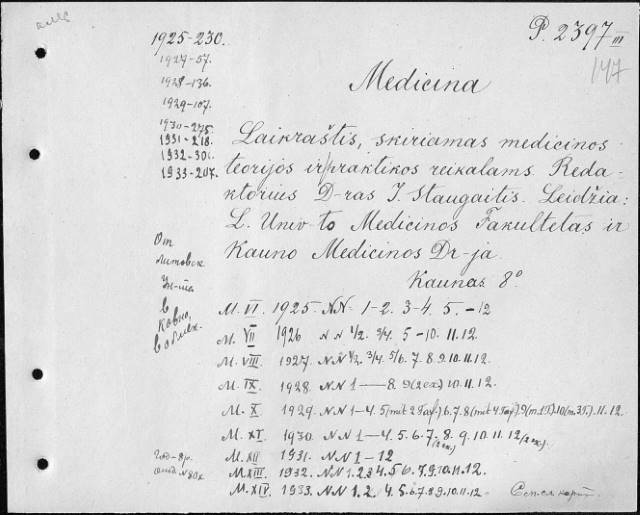 P. 2397 III
147
1925-230.
1927-57.
1928-136.
1929-107.
1930-275
1931-218.
1932-301.
1933-207.
Medicina
Laikraštis, skiriamas medicinos
teorijos ir praktikos reikalams. Reda-
ktorius D-ras J. Staugaitis. Leidžia:
L. Univ-to Medicinos Fakultetas ir
Kauno Medicinos Dr-ja.
Kaunas 8°
От
литовск.
Ун-та
в
Ковно,
в обмен.
M. VI. 1925. NN. 1-2. 3-4. 5. -12
M. VII 1926 NN 1/2. 3/4. 5 -10. 11. 12.
M. VIII. 1927. NN 1/2. 3/4. 5/6. 7. 8. 9. 10. 11. 12.
M. IX. 1928. NN 1 — 8. 9(2ex.) 10. 11. 12.
M. X. 1929. NN 1-4. 5(mit 2 Taf.). 6. 7. 8(mit 4 Taf.). 9(m. 1 T.). 10(m. 3 T.). 11. 12.
M. XI. 1930. NN 1-4. 5. 6. 7(2ex.). 8. 9. 10. 11. 12(2ex.).
M. XII 1931. NN 1-12
M. XIII. 1932. NN 1. 2. 3. 4. 5. 6. 7. 8. 9. 10. 11. 12.
M. XIV. 1933. NN 1. 2. 4. 5. 6. 7. 8. 9. 10. 11. 12